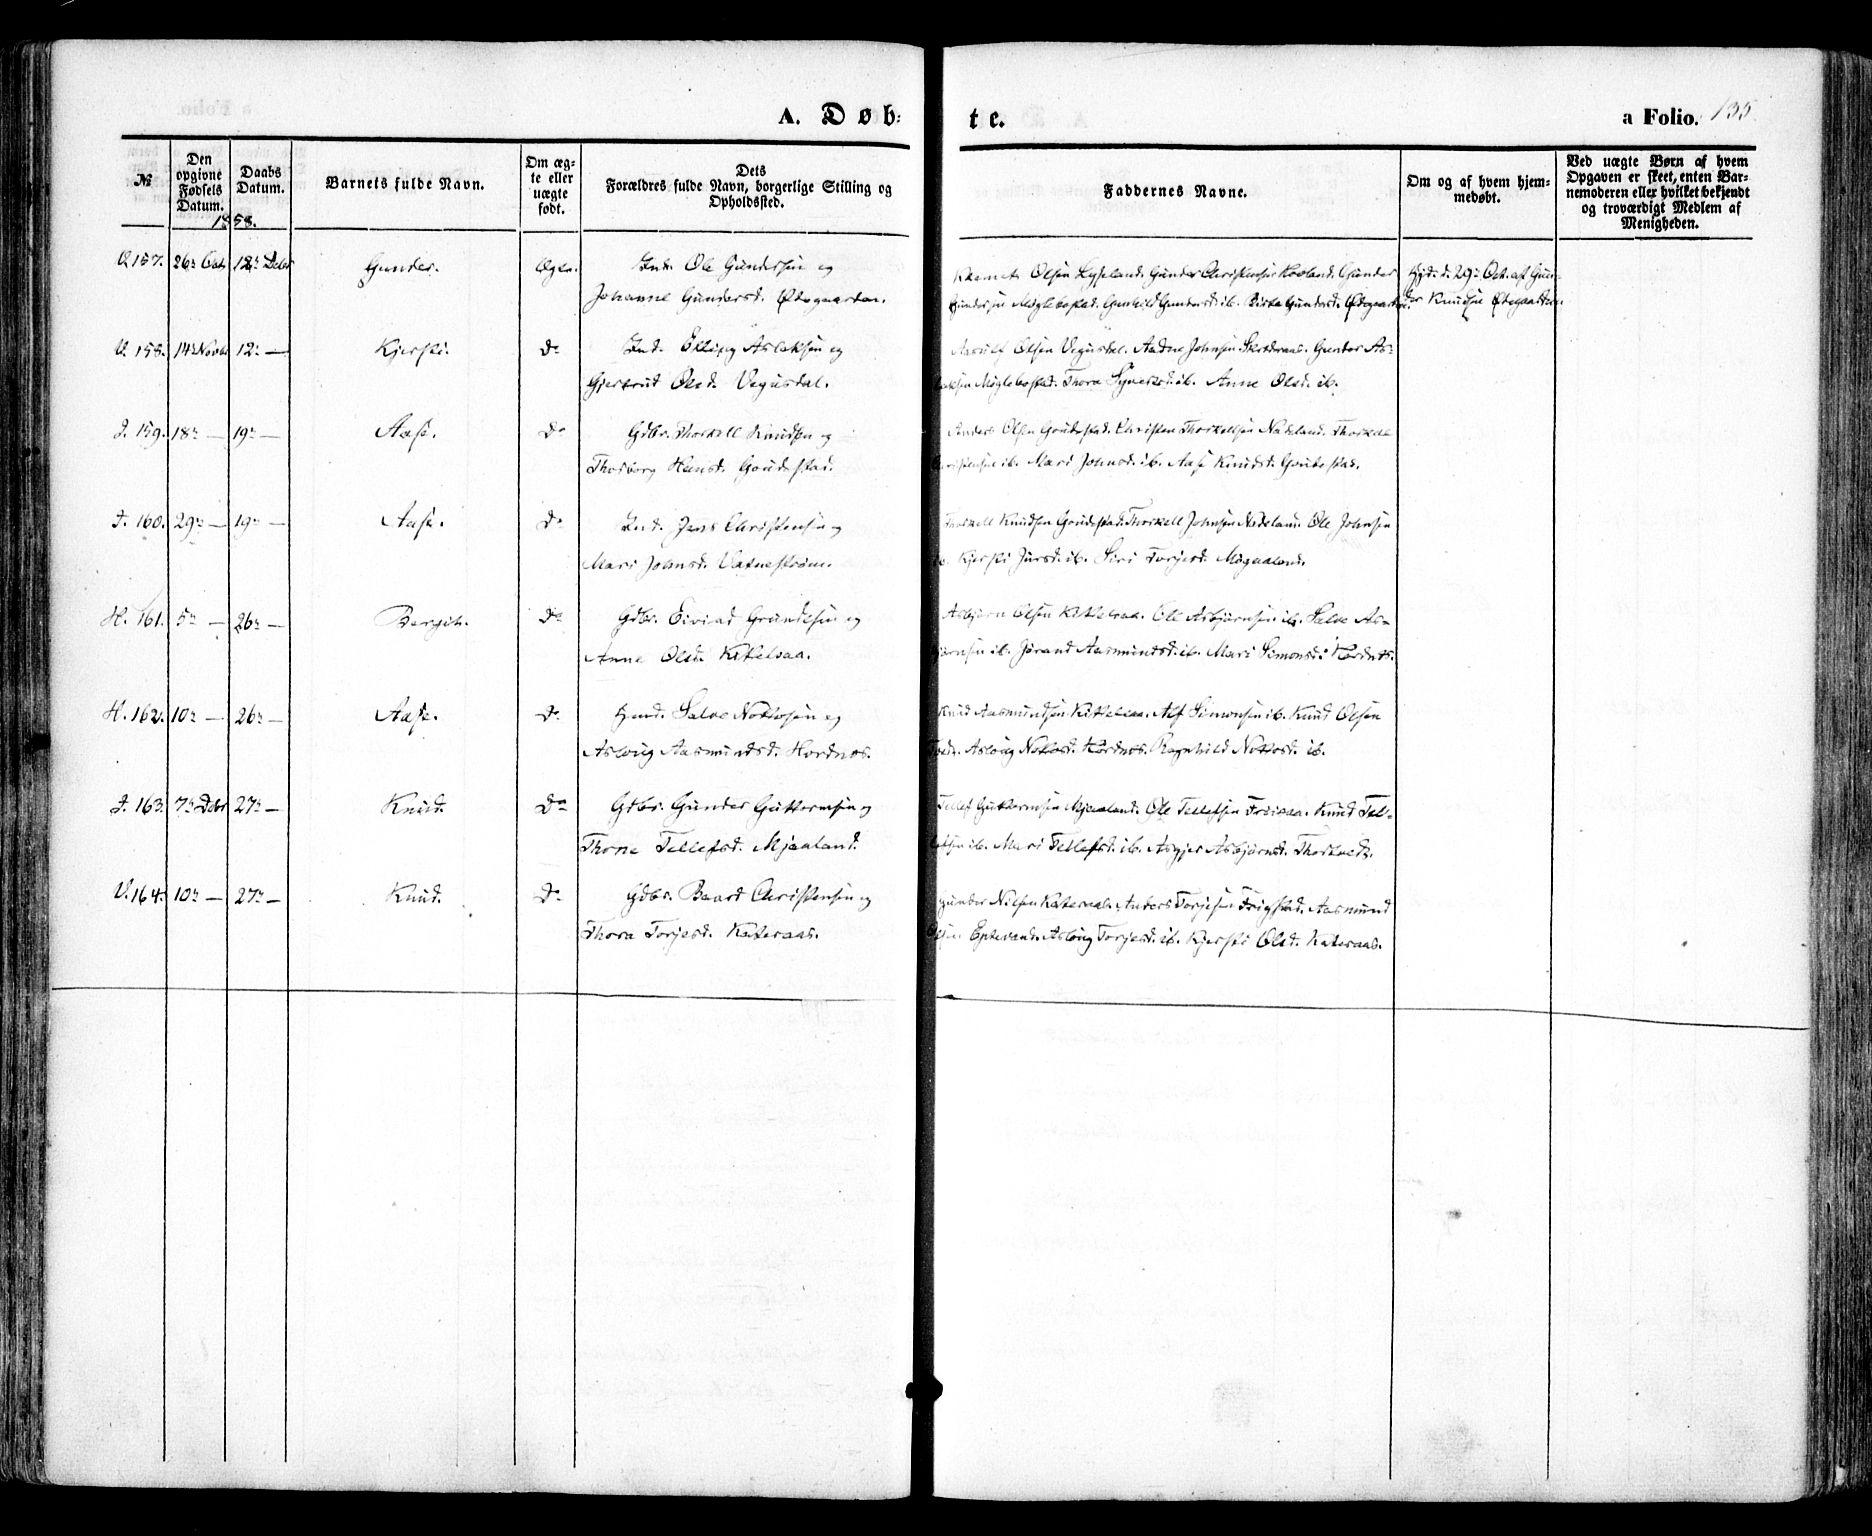 A. Døb-
te.
a Folio. 135
№
Den opgivne Fødsels Datum.
Daabs Datum.
Barnets fulde Navn.
Om ægte eller uægte født.
Dets Forældres fulde Navn, borgerlige Stilling og Opholdssted.
Faddernes Navne.
Om og af hvem hjemmedøbt.
Ved uægte Børn af hvem Opgaven er skeet, enten Barnemoderen eller hvilket bekjendt og troværdigt Medlem af Menigheden.
1858.
157. 26 Oct. 12 Decbr Gunder. Ægte. Ind. Ole Gundersen og
Johanne Gundersd. Ødegaarden.
Olsen Lyseland. Gunder Christensen Hovland. Gunder
Gundersen Møglebostad. Gunhild Gundersd. ib. Birte Gundersd. Ødegaarden.
Hjd. d. 29 Oct. af Gun-
der Knudsen Ødegaarden.
V. 158. 14 Novbr 12 — Kjersti. Do Ind. Ellisiv Aslaksen og
Gjertrud Olsd. Vegusdal.
Olsen Vegusdal. Aadne Johnsen Skerderaas. Gunder As-
laksen Møglebostad. Thora Syvertsd. ib. Anne Olsd. ib.
I. 159. 18 — 19 — Aase. Do Gdbr. Thorkell Knudsen og
Thorborg Hansd. Goudestad.
Anders Olsen Goudestad. Christen Thorkellsen Nateland. Thorkell
Christensen ib. Mari Johnsd. ib. Aase Knudsd. Goudestad.
I. 160. 29 — 19 — Aase. Do Ind. Jens Christensen og
Mari Johnsd. Vatnestrøm.
Thorkell Knudsen Goudestad. Thorkell Johnsen Ole Johnsen
ib. Kjersti Jensd. ib. Siri Torjesd.
H. 161. 5 — 26 — Bergit. Do Gdbr. Eivind Grundesen og
Anne Olsd. Kittelsaa.
Asbjørn Olsen Kittelsaa. Ole Asbjørnsen ib. Salve As-
bjørnsen ib. Jørand Aasmundsd. ib. Mari Simonsd. Hordnes.
H. 162. 10 — 26 — Aase. Do Salve Nottosen og
Asloug Aasmundsd. Hordnes.
Knud Aasmundsen Kittelsaa. Alf Simonsen ib. Knud Olsen
Asloug Nottosd. Hordnes. Ragnhild Nottosd. ib.
I. 163. 7 Dcbr 27 — Knud. Do Gdbr. Gunder Guttormsen og
Thone Tellefsd. Mjaaland.
Tellef Guttormsen Mjaaland. Ole Tellefsen Frøisaa. Knud Tel-
lefsen ib. Mari Tellefsd. ib. Asgjer Asbjørnsd. Thortvedt.
V. 164. 10 — 27 — Knud. Do Gdbr. Baard Christensen og
Thora Torjesd. Kateraas.
Gunder Nilsen Kateraas. Anders Torjesen Frigstad. Aasmund
Olsen Eptevand. Asloug Torjesd. ib. Kjersti Olsd. Kateraas.